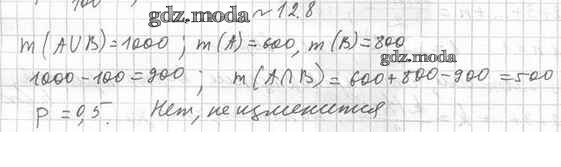 100
gdz.moda ~ 12.8
m(A∪B)=1000; m(A)=600, m(B)=800
gdz.moda
1000-100=900; m(A∩B)=600+800-900=500
P=0,5. Нет, не изменится